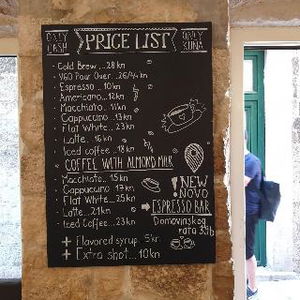 ONLY CASH
PRICE LIST
ONLY KUNA
Cold Brew...28kn
V60 Pour Over...26/4kn
Espresso...10kn
Americano...12kn
Macchiato...11kn
Cappuccino...13kn
Flat White...23kn
Latte...16kn
Iced coffee...18kn
COFFEE WITH ALMOND MILK
Macchiato...15kn
Cappuccino...17kn
Flat White...25kn
Latte...21kn
Iced Coffee...23kn
+ Flavored syrup 5kn
+ Extra shot...10kn
! NEW
NOVO
ESPRESSO BAR
Domovinskog
rata